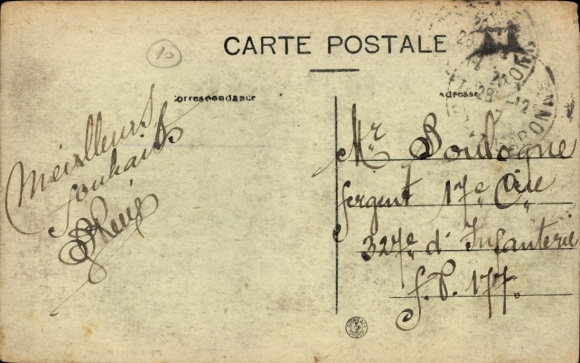 10
CARTE POSTALE
Correspondance
Adresse
Meilleurs
souhaits
Mr Boulogne
Sergent 17e Cie
327e d'Infanterie
S.P. 177.